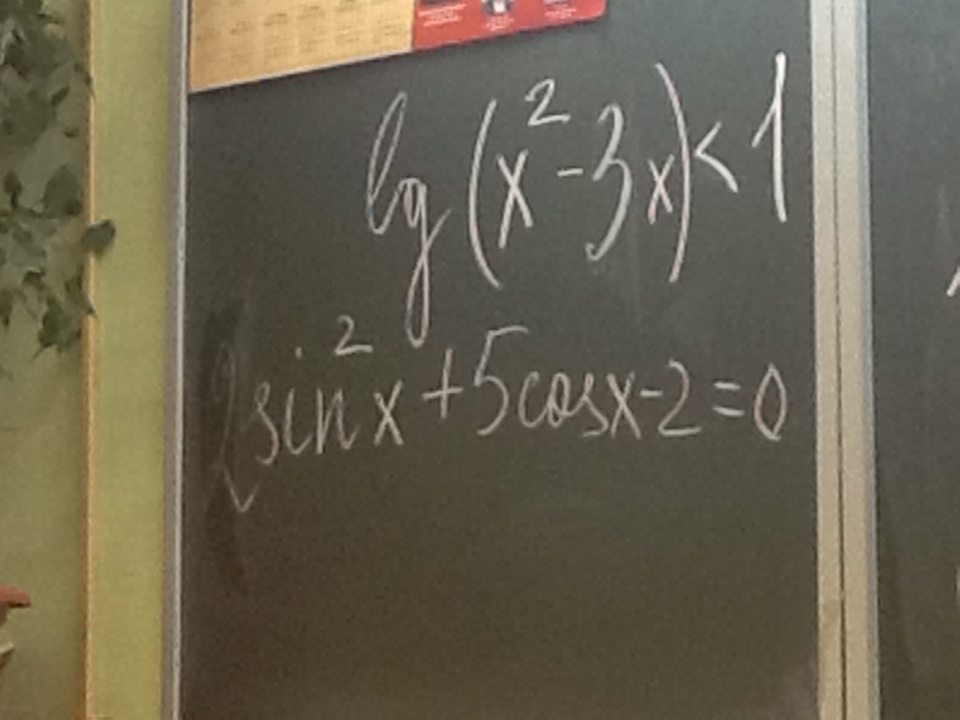 lg(x²-3x)<1
2sin²x+5cosx-2=0